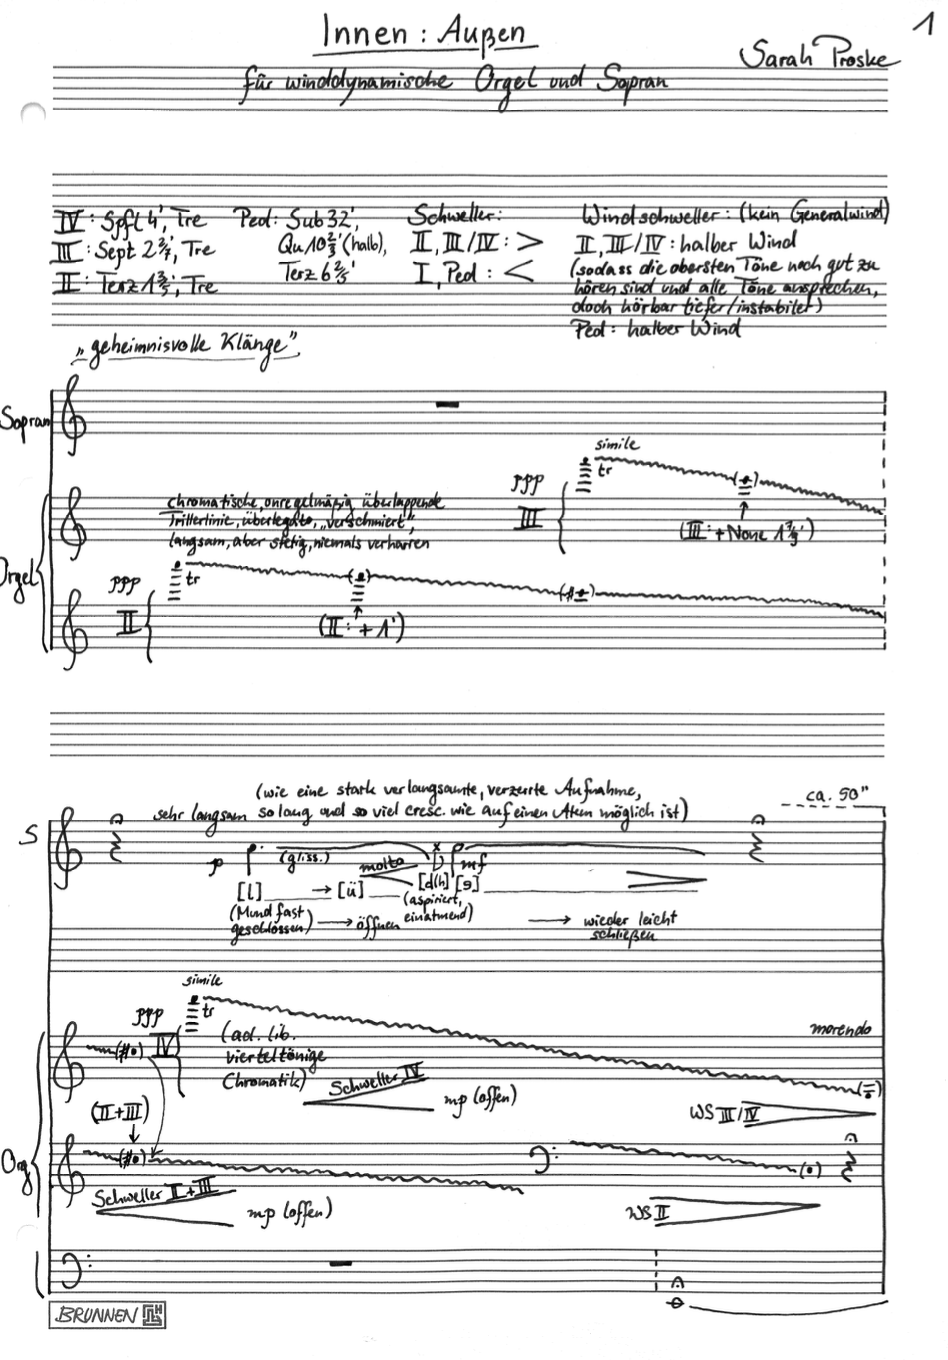 1
Innen : Außen
Sarah Proske
für winddynamische Orgel und Sopran
IV: Spfl 4', Tre
III: Sept 2 2/7', Tre
II: Terz 1 3/5', Tre
Ped: Sub 32',
Qu 10 2/3' (halb),
Terz 6 2/5'
Schweller:
II, III/IV: >
I, Ped: <
Windschweller: (kein Generalwind)
II, III/IV: halber Wind
(sodass die obersten Töne noch gut zu
hören sind und alle Töne ansprechen,
doch hörbar tiefer/instabiler)
Ped: halber Wind
„geheimnisvolle Klänge"
Sopran
Orgel
simile
tr
ppp
III
(III: + None 1 7/9')
chromatische, unregelmäßig überlappende
Trillerlinie, überlegato, „verschmiert",
langsam, aber stetig, niemals verharren
ppp
tr
II
(II: + 1')
(wie eine stark verlangsamte, verzerrte Aufnahme,
sehr langsam so lang und so viel cresc. wie auf einen Atem möglich ist)
ca. 50"
S
p
(gliss.)
molto
mf
[l] → [ü] [d(h)] [ə]
(Mund fast geschlossen) → öffnen
(aspiriert, einatmend)
→ wieder leicht
schließen
simile
ppp
tr
IV
(ad. lib.
vierteltönige
Chromatik)
morendo
Schweller IV
mp (offen)
(II+III)
WS III/IV
Org
Schweller II+III
mp (offen)
WS II
BRUNNEN